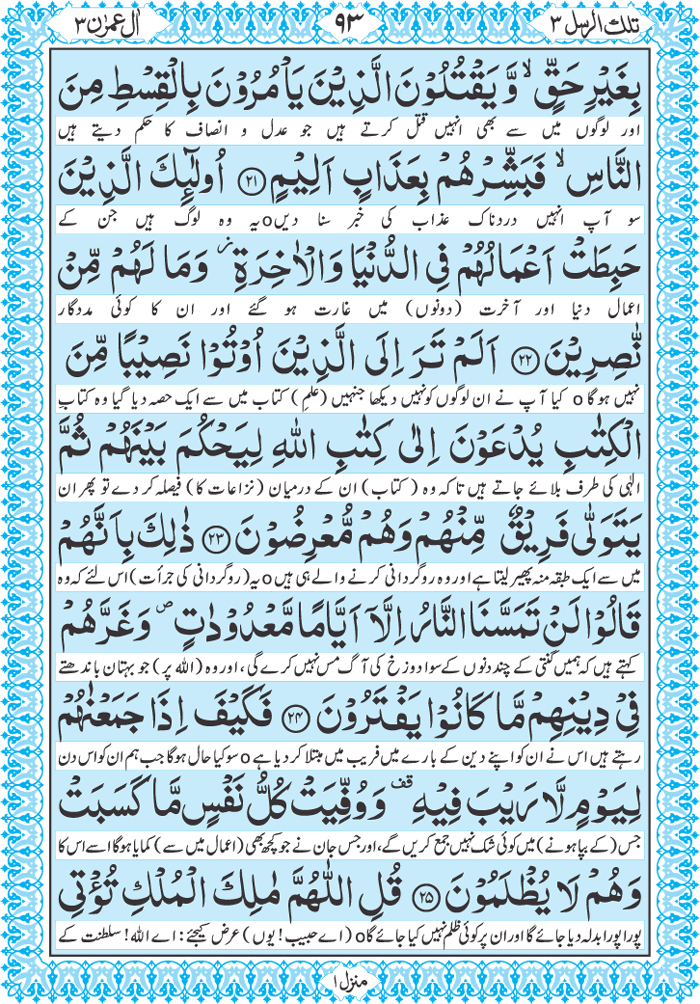 تلك الرسل ٣ ٩٣ اٰل عمرٰن ٣
بِغَيْرِ حَقٍّ ۙ وَّ يَقْتُلُوْنَ الَّذِيْنَ يَاْمُرُوْنَ بِالْقِسْطِ مِنَ
اور لوگوں میں سے بھی انہیں قتل کرتے ہیں جو عدل و انصاف کا حکم دیتے ہیں
النَّاسِ ۙ فَبَشِّرْهُمْ بِعَذَابٍ اَلِيْمٍ ﴿٢١﴾ اُولٰٓئِكَ الَّذِيْنَ
سو آپ انہیں دردناک عذاب کی خبر سنا دیںo یہ وہ لوگ ہیں جن کے
حَبِطَتْ اَعْمَالُهُمْ فِي الدُّنْيَا وَالْاٰخِرَةِ ؗ وَمَا لَهُمْ مِّنْ
اعمال دنیا اور آخرت (دونوں) میں غارت ہو گئے اور ان کا کوئی مددگار
نّٰصِرِيْنَ ﴿٢٢﴾ اَلَمْ تَرَ اِلَى الَّذِيْنَ اُوْتُوْا نَصِيْبًا مِّنَ
نہیں ہوگا o کیا آپ نے ان لوگوں کو نہیں دیکھا جنہیں (علمِ) کتاب میں سے ایک حصہ دیا گیا وہ کتابِ
الْكِتٰبِ يُدْعَوْنَ اِلٰى كِتٰبِ اللّٰهِ لِيَحْكُمَ بَيْنَهُمْ ثُمَّ
الٰہی کی طرف بلائے جاتے ہیں تاکہ وہ (کتاب) ان کے درمیان (نزاعات کا) فیصلہ کر دے تو پھر ان
يَتَوَلّٰى فَرِيْقٌ مِّنْهُمْ وَهُمْ مُّعْرِضُوْنَ ﴿٢٣﴾ ذٰلِكَ بِاَنَّهُمْ
میں سے ایک طبقہ منہ پھیر لیتا ہے اور وہ روگردانی کرنے والے ہی ہیں o یہ (روگردانی کی جرأت) اس لئے کہ وہ
قَالُوْا لَنْ تَمَسَّنَا النَّارُ اِلَّاۤ اَيَّامًا مَّعْدُوْدٰتٍ ۪ وَغَرَّهُمْ
کہتے ہیں کہ ہمیں گنتی کے چند دنوں کے سوا دوزخ کی آگ مس نہیں کرے گی، اور وہ (اللہ پر) جو بہتان باندھتے
فِيْ دِيْنِهِمْ مَّا كَانُوْا يَفْتَرُوْنَ ﴿٢٤﴾ فَكَيْفَ اِذَا جَمَعْنٰهُمْ
رہتے ہیں اس نے ان کو اپنے دین کے بارے میں فریب میں مبتلا کر دیا ہے o سو کیا حال ہوگا جب ہم ان کو اس دن
لِيَوْمٍ لَّا رَيْبَ فِيْهِ ۫ وَوُفِّيَتْ كُلُّ نَفْسٍ مَّا كَسَبَتْ
جس (کے بپا ہونے) میں کوئی شک نہیں جمع کریں گے، اور جس جان نے جو کچھ بھی (اعمال میں سے) کمایا ہوگا اسے اس کا
وَهُمْ لَا يُظْلَمُوْنَ ﴿٢٥﴾ قُلِ اللّٰهُمَّ مٰلِكَ الْمُلْكِ تُؤْتِي
پورا پورا بدلہ دیا جائے گا اور ان پر کوئی ظلم نہیں کیا جائے گاo (اے حبیب! یوں) عرض کیجئے: اے اللہ! سلطنت کے
منزل ١